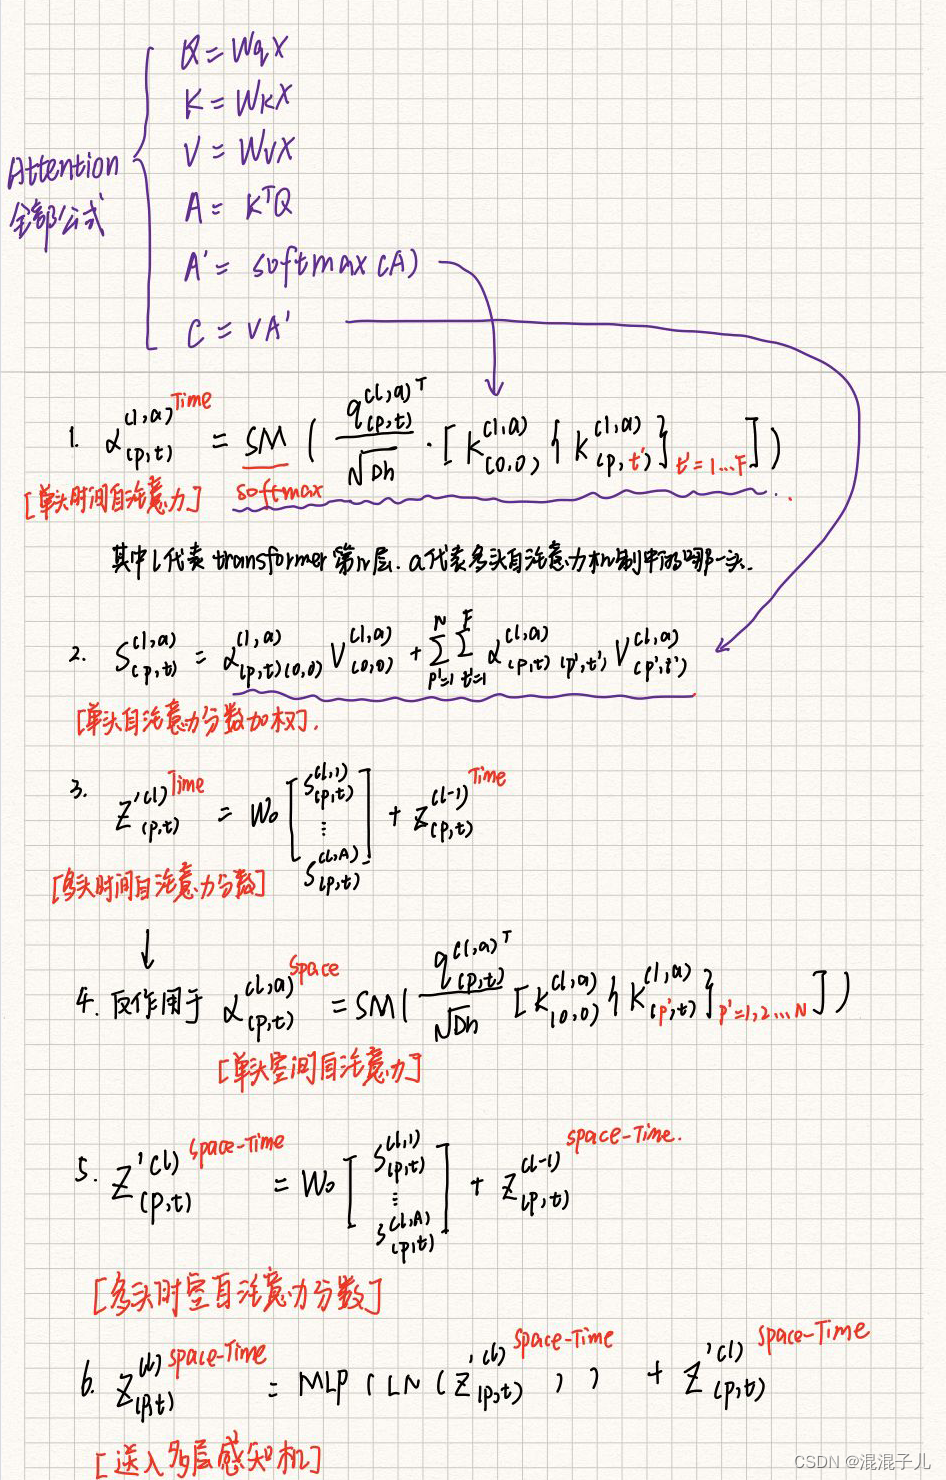 Q = WqX
K = WKX
V = WVX
Attention
全部公式
A = K^T Q
A' = softmax(A)
C = VA'
1. α_(p,t)^(l,a) Time = SM ( q_(p,t)^(l,a)T / √Dh · [ K_(0,0)^(l,a) { K_(p,t')^(l,a) }_t'=1...F ] )
softmax
[单头时间自注意力]
其中l代表transformer第n层. a代表多头自注意力机制中的哪一头.
2. S_(p,t)^(l,a) = α_(p,t)(0,0)^(l,a) V_(0,0)^(l,a) + Σ_p'=1^N Σ_t'=1^F α_(p,t)(p',t')^(l,a) V_(p',t')^(l,a)
[单头自注意力分数加权].
3. Z'_(p,t)^(l) Time = Wo [ S_(p,t)^(l,1) ⋮ S_(p,t)^(l,A) ] + Z_(p,t)^(l-1) Time
[多头时间自注意力分数]
↓
4. 反作用于 α_(p,t)^(l,a) Space = SM( q_(p,t)^(l,a)T / √Dh [ K_(0,0)^(l,a) { K_(p',t)^(l,a) }_p'=1,2...N ] )
[单头空间自注意力]
5. Z'_(p,t)^(l) Space-Time = Wo [ S_(p,t)^(l,1) ⋮ S_(p,t)^(l,A) ] + Z_(p,t)^(l-1) Space-Time.
[多头时空自注意力分数]
6. Z_(p,t)^(l) Space-Time = MLP ( LN ( Z'_(p,t)^(l) Space-Time ) ) + Z'_(p,t)^(l) Space-Time
[送入多层感知机]
CSDN @混混子儿